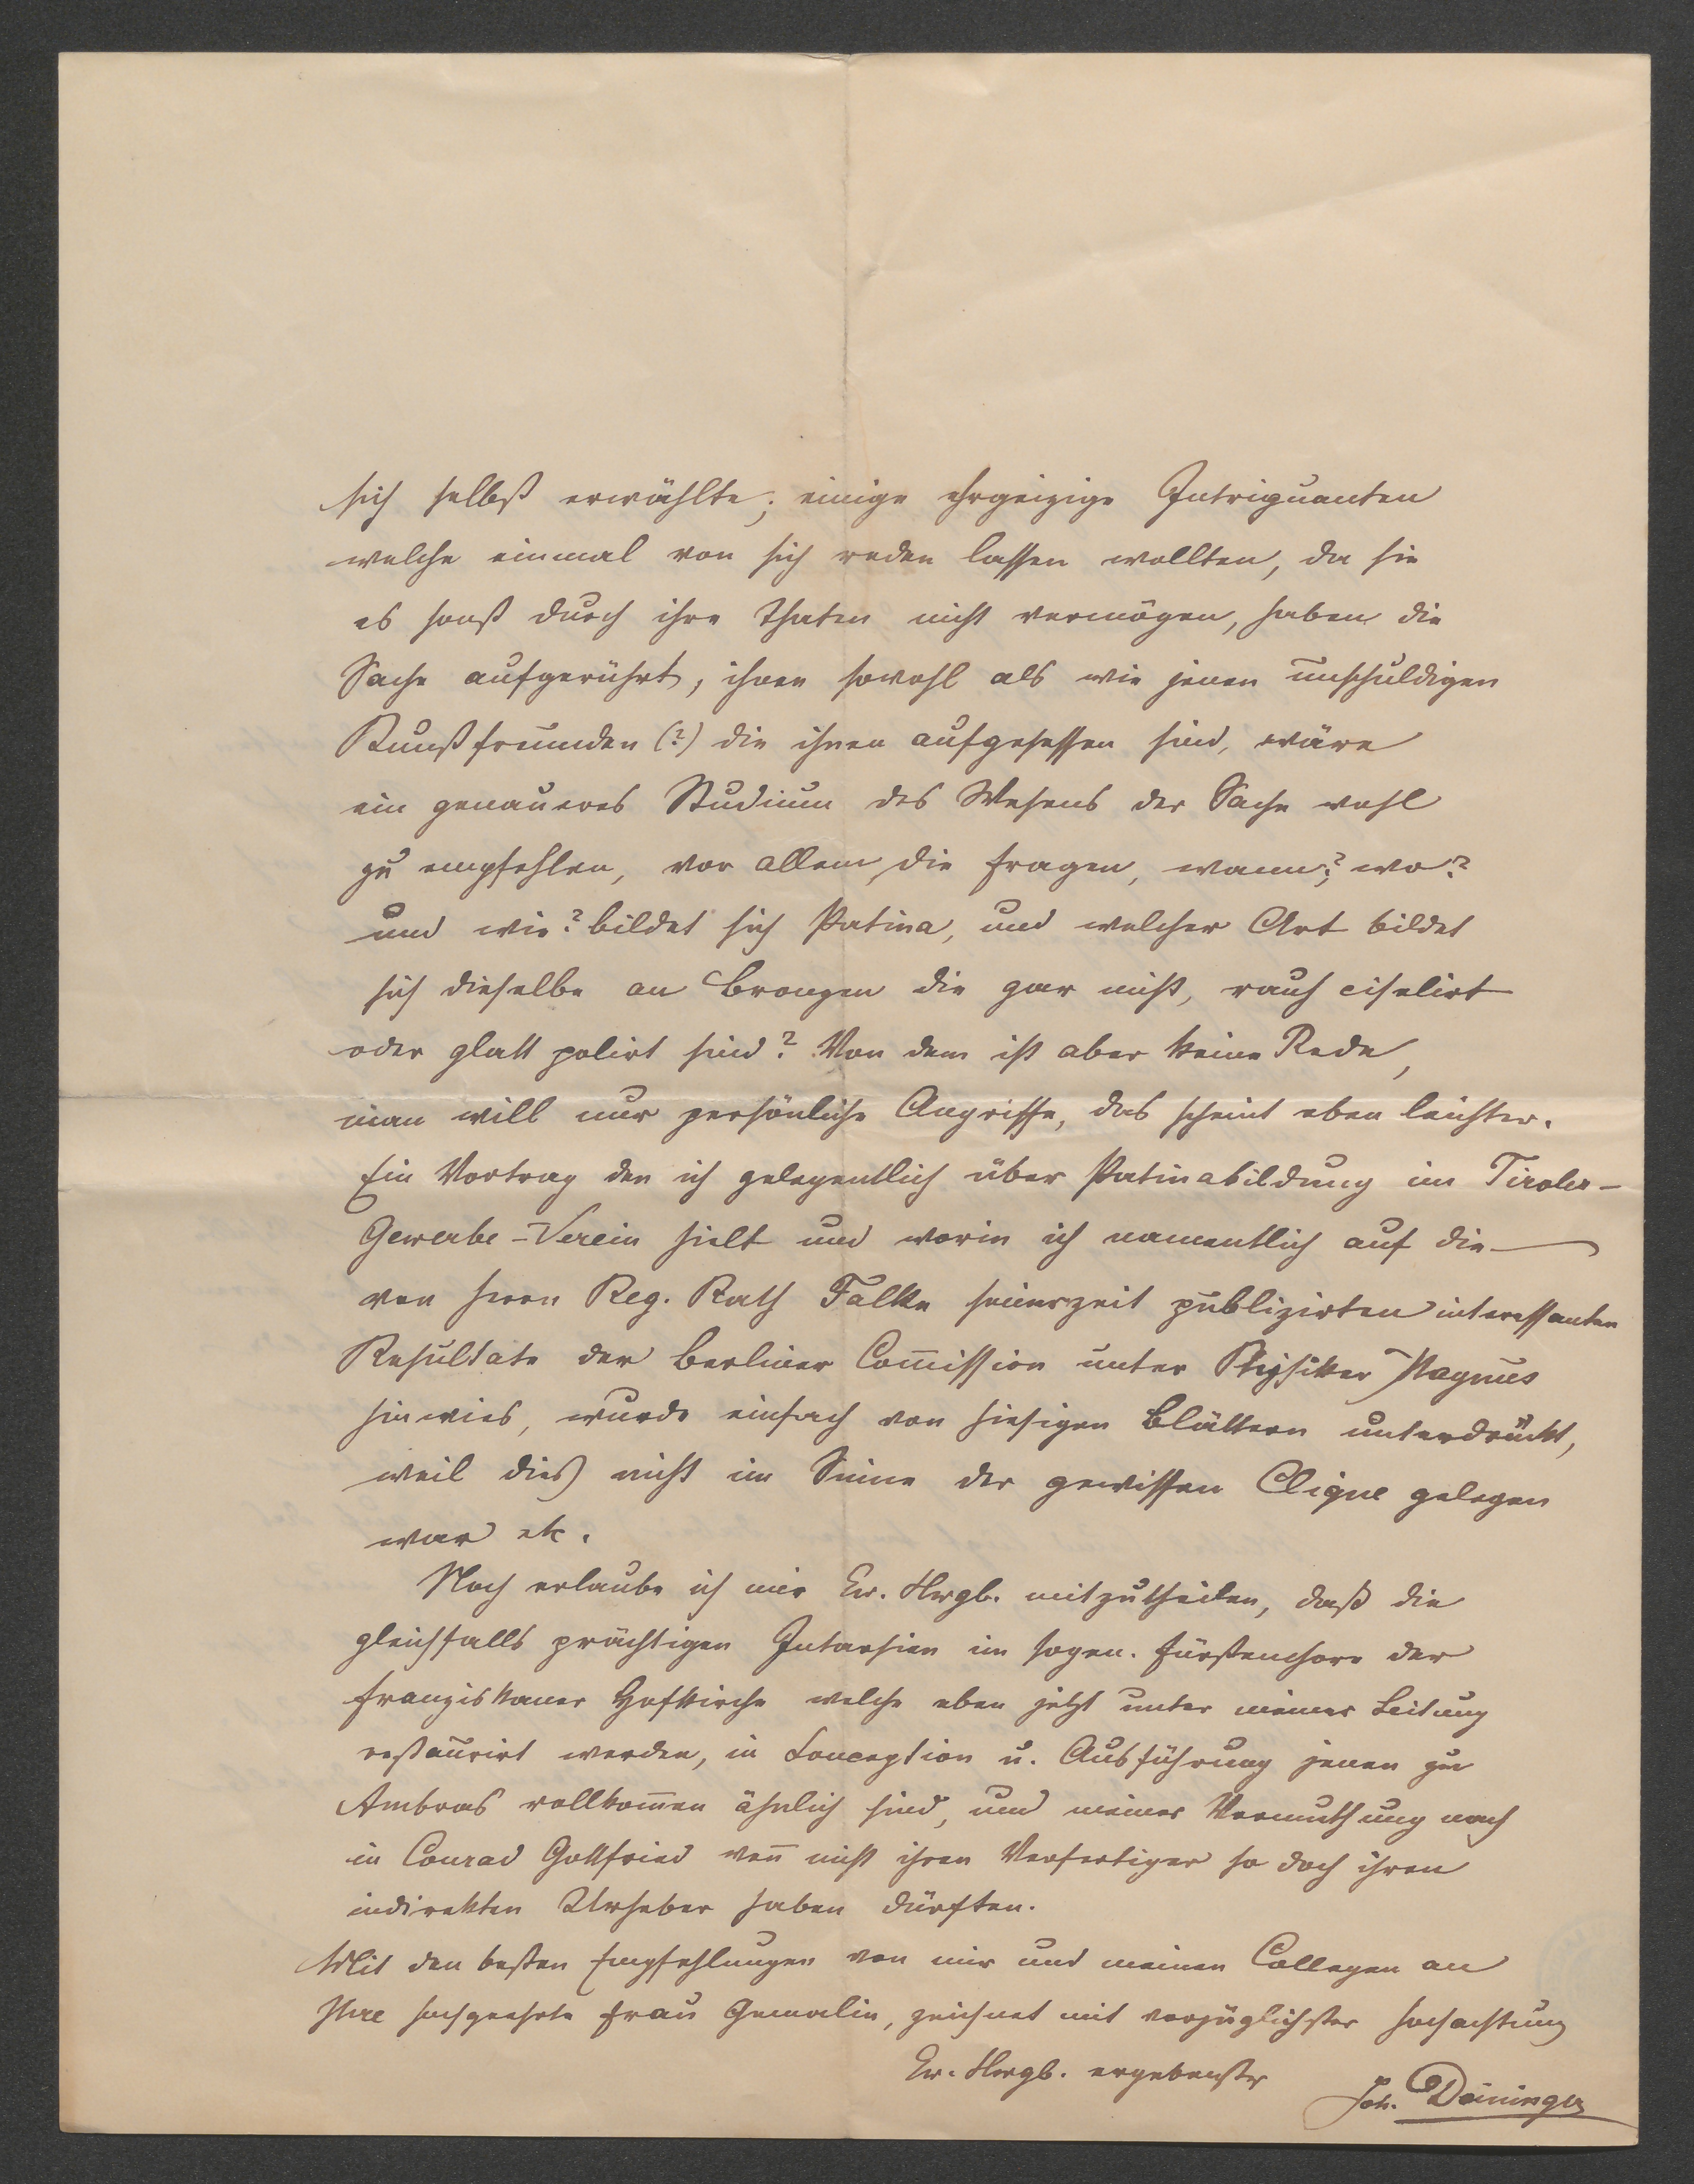 sich selbst erwählte; einige ehrgeizige Intriguanten
welche einmal von sich reden lassen wollten, da sie
es sonst durch ihre Thaten nicht vermögen, haben die
Sache aufgerührt, ihnen sowohl als wie jenen unschuldigen
Kunstfreunden (?) die ihnen aufgesessen sind, wäre
ein genaueres Studium des Wesens der Sache wohl
zu empfehlen, vor allem die Fragen, wann? wo?
und wie? bildet sich Patina, und welcher Art bildet
sich dieselbe an Bronzen die gar nicht, rauh ciselirt
oder glatt polirt sind? Von dem ist aber keine Rede,
man will nur persönliche Angriffe, das scheint eben leichter.
Ein Vortrag den ich gelegentlich über Patinabildung im Tiroler-
Gewerbe-Verein hielt und worin ich namentlich auf die
von Herrn Reg. Rath Falke seinerzeit publizirten interessanten
Resultate der Berliner Com̅ission unter Physiker Magnus
hinwies, wurde einfach von hiesigen Blättern unterdrückt,
weil dies nicht im Sinne der gewissen Clique gelegen
war etc.
Noch erlaube ich mir Ew. Hwgb. mitzutheilen, daß die
gleichfalls prächtigen Intarsien im sogen. Fürstenchore der
Franziskaner Hofkirche welche eben jetzt unter meiner Leitung
restaurirt werden, in Conception u. Ausführung jenen zu
Ambras vollkom̅en ähnlich sind, und meiner Vermuthung nach
in Conrad Gottfried wen̅ nicht ihren Verfertiger so doch ihren
indirekten Urheber haben dürften.
Mit den besten Empfehlungen von mir und meinen Collegen an
Ihre hochgeehrte Frau Gemalin, zeichnet mit vorzüglichster Hochachtung
Ew. Hwgb. ergebenster
Joh. Deininger